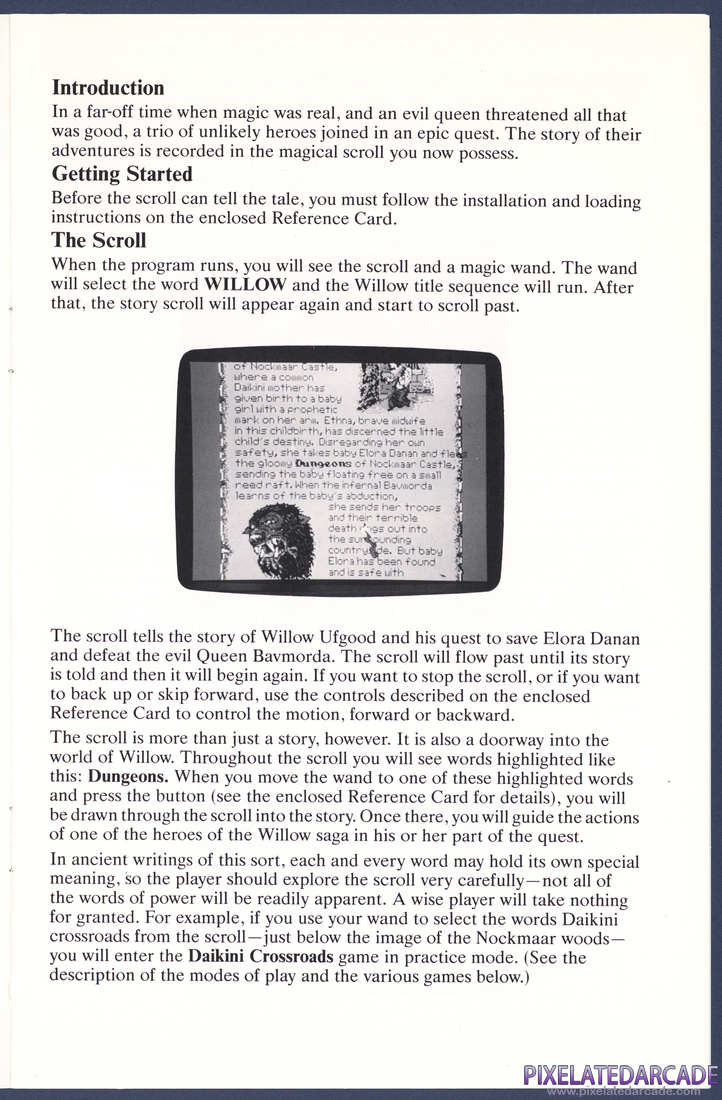 Introduction
In a far-off time when magic was real, and an evil queen threatened all that
was good, a trio of unlikely heroes joined in an epic quest. The story of their
adventures is recorded in the magical scroll you now possess.
Getting Started
Before the scroll can tell the tale, you must follow the installation and loading
instructions on the enclosed Reference Card.
The Scroll
When the program runs, you will see the scroll and a magic wand. The wand
will select the word WILLOW and the Willow title sequence will run. After
that, the story scroll will appear again and start to scroll past.
of Nockmaar Castle,
where a common
Daikini mother has
given birth to a baby
girl with a prophetic
mark on her arm. Ethna, brave midwife
in this childbirth, has discerned the little
child's destiny. Disregarding her own
safety, she takes baby Elora Danan and flees
the gloomy Dungeons of Nockmaar Castle,
sending the baby floating free on a small
reed raft. When the infernal Bavmorda
learns of the baby's abduction,
she sends her troops
and their terrible
death out into
the
But baby
Elora has been found
and is safe with
The scroll tells the story of Willow Ufgood and his quest to save Elora Danan
and defeat the evil Queen Bavmorda. The scroll will flow past until its story
is told and then it will begin again. If you want to stop the scroll, or if you want
to back up or skip forward, use the controls described on the enclosed
Reference Card to control the motion, forward or backward.
The scroll is more than just a story, however. It is also a doorway into the
world of Willow. Throughout the scroll you will see words highlighted like
this: Dungeons. When you move the wand to one of these highlighted words
and press the button (see the enclosed Reference Card for details), you will
be drawn through the scroll into the story. Once there, you will guide the actions
of one of the heroes of the Willow saga in his or her part of the quest.
In ancient writings of this sort, each and every word may hold its own special
meaning, so the player should explore the scroll very carefully—not all of
the words of power will be readily apparent. A wise player will take nothing
for granted. For example, if you use your wand to select the words Daikini
crossroads from the scroll—just below the image of the Nockmaar woods—
you will enter the Daikini Crossroads game in practice mode. (See the
description of the modes of play and the various games below.)
PIXELATEDARCADE
www.pixelatedarcade.com